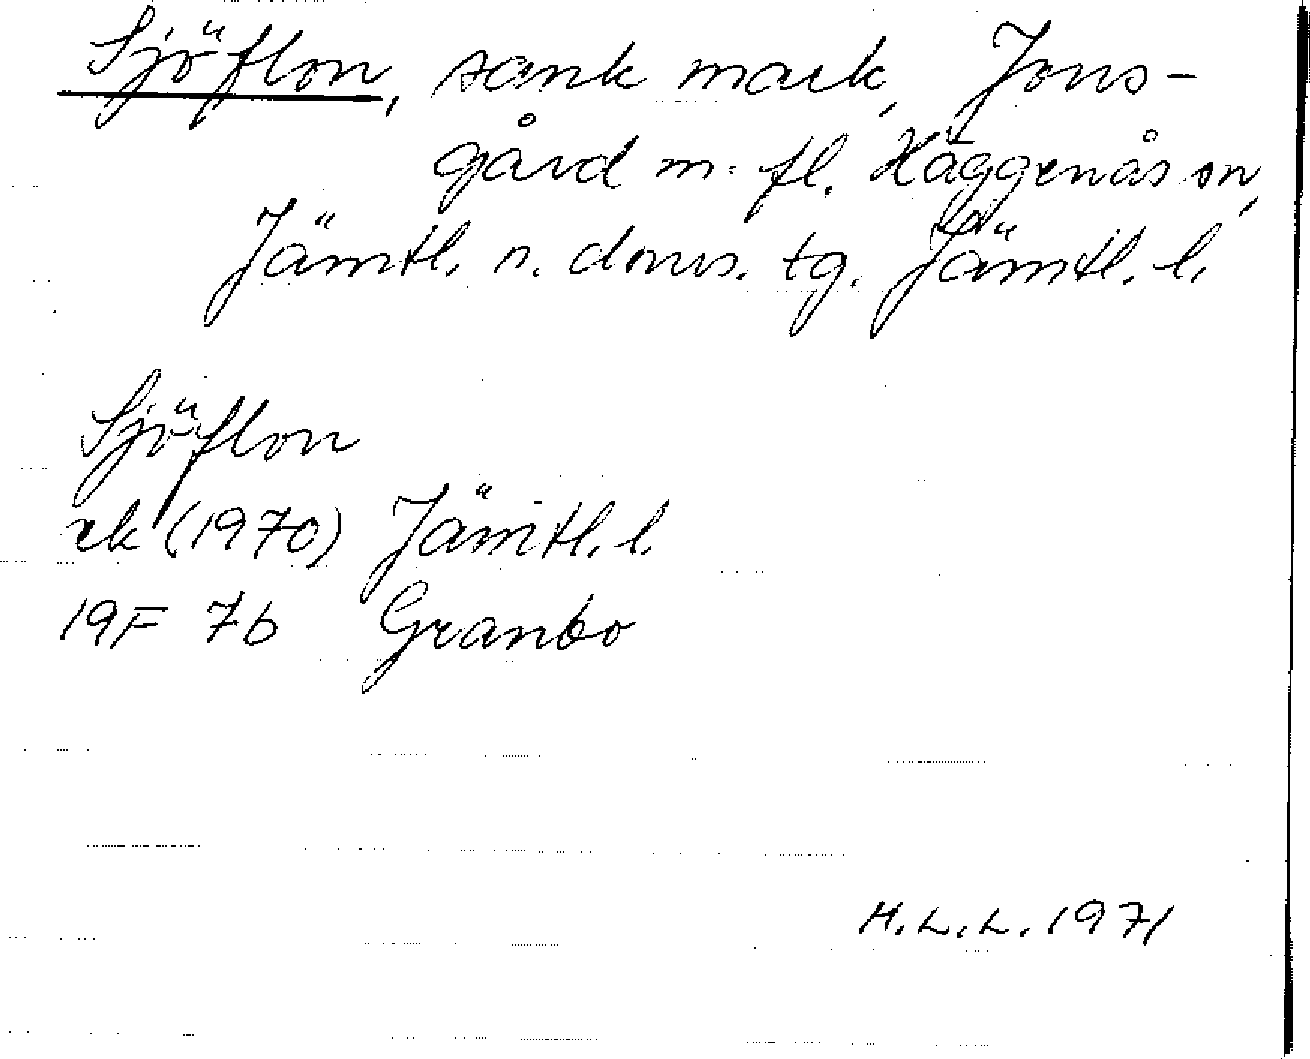 Sjöflon, sank mark, Jons-
gård m. fl. Häggenås sn,
Jämtl. n. doms. tg. Jämtl. l.
Sjöflon
rk (1970) Jämtl. l.
19F 7b Granbo
H.L.L. 1971